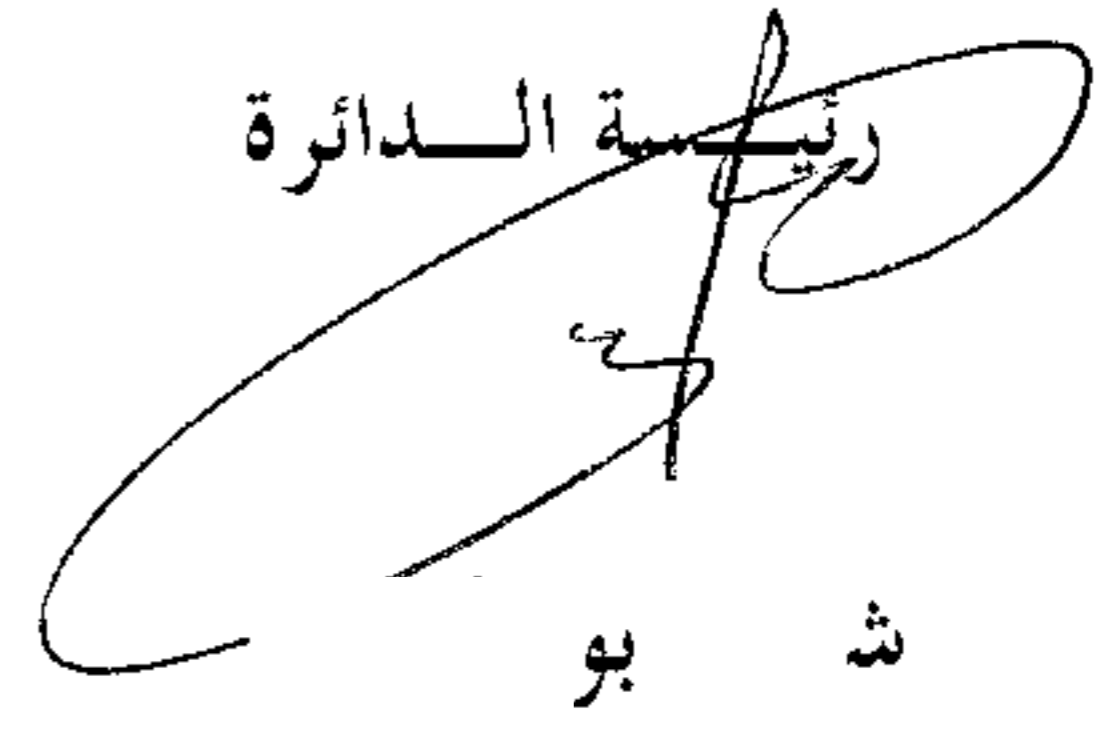 رئيسة الدائرة
شـ بو